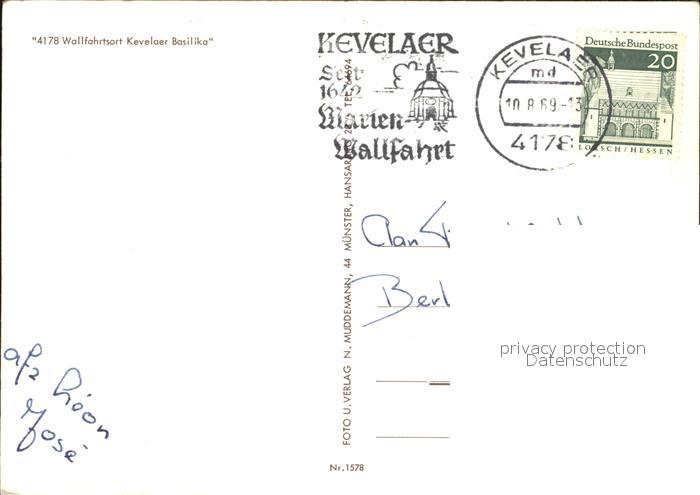 "4178 Wallfahrtsort Kevelaer Basilika"
KEVELAER
Seit
1642
Marien-
Wallfahrt
KEVELAER
md
10.8.69-13
4178
Deutsche Bundespost
20
LORSCH/HESSEN
FOTO U. VERLAG N. MUDDEMANN, 44 MÜNSTER, HANSARING TEL.
Berl
privacy protection
Datenschutz
José
Nr. 1578